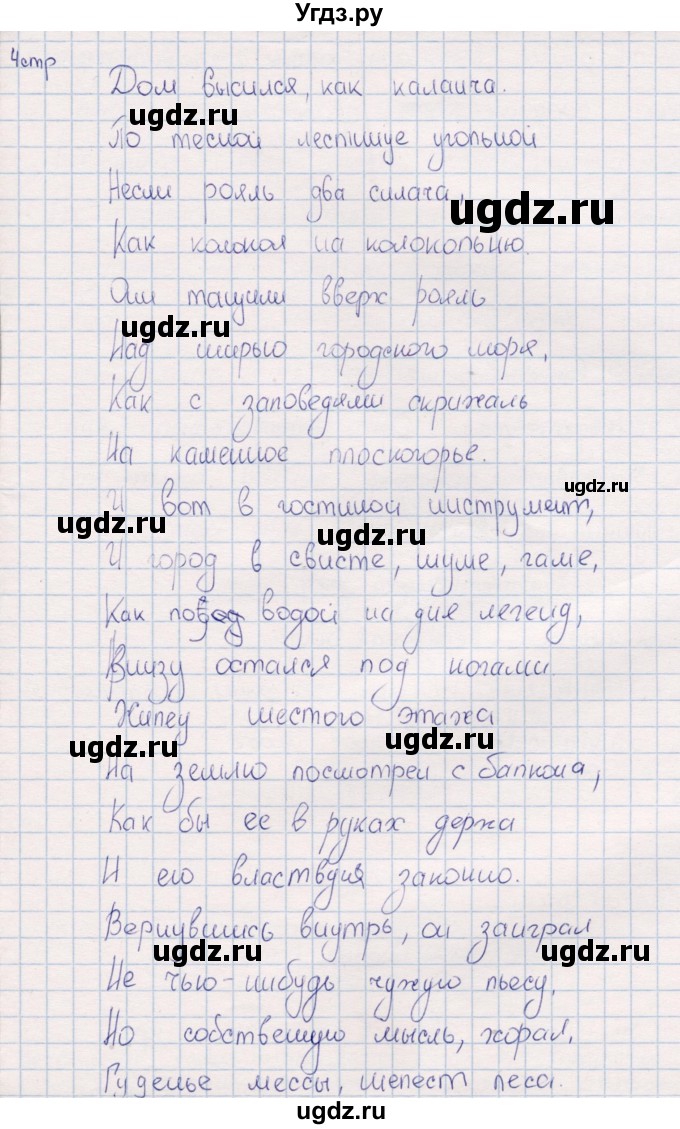 Угдз.ру
4стр
Дом высился, как каланча.
ugdz.ru
По тесной лестнице угольной
Несли рояль два силача,
ugdz.ru
Как колокол на колокольню.
Они тащили вверх рояль
ugdz.ru
Над ширью городского моря,
Как с заповедями скрижаль
На каменное плоскогорье.
ugdz.ru
И вот в гостиной инструмент,
ugdz.ru
ugdz.ru
И город в свисте, шуме, гаме,
Как под водой на дне легенд,
Внизу остался под ногами
Жилец шестого этажа
ugdz.ru
ugdz.ru
На землю посмотрел с балкона,
Как бы ее в руках держа
И его властвуя законно.
Вернувшись внутрь, он заиграл
ugdz.ru
ugdz.ru
Не чью-нибудь чужую пьесу,
Но собственную мысль, хорал,
ugdz.ru
Гуденье мессы, шелест леса.
ugdz.ru